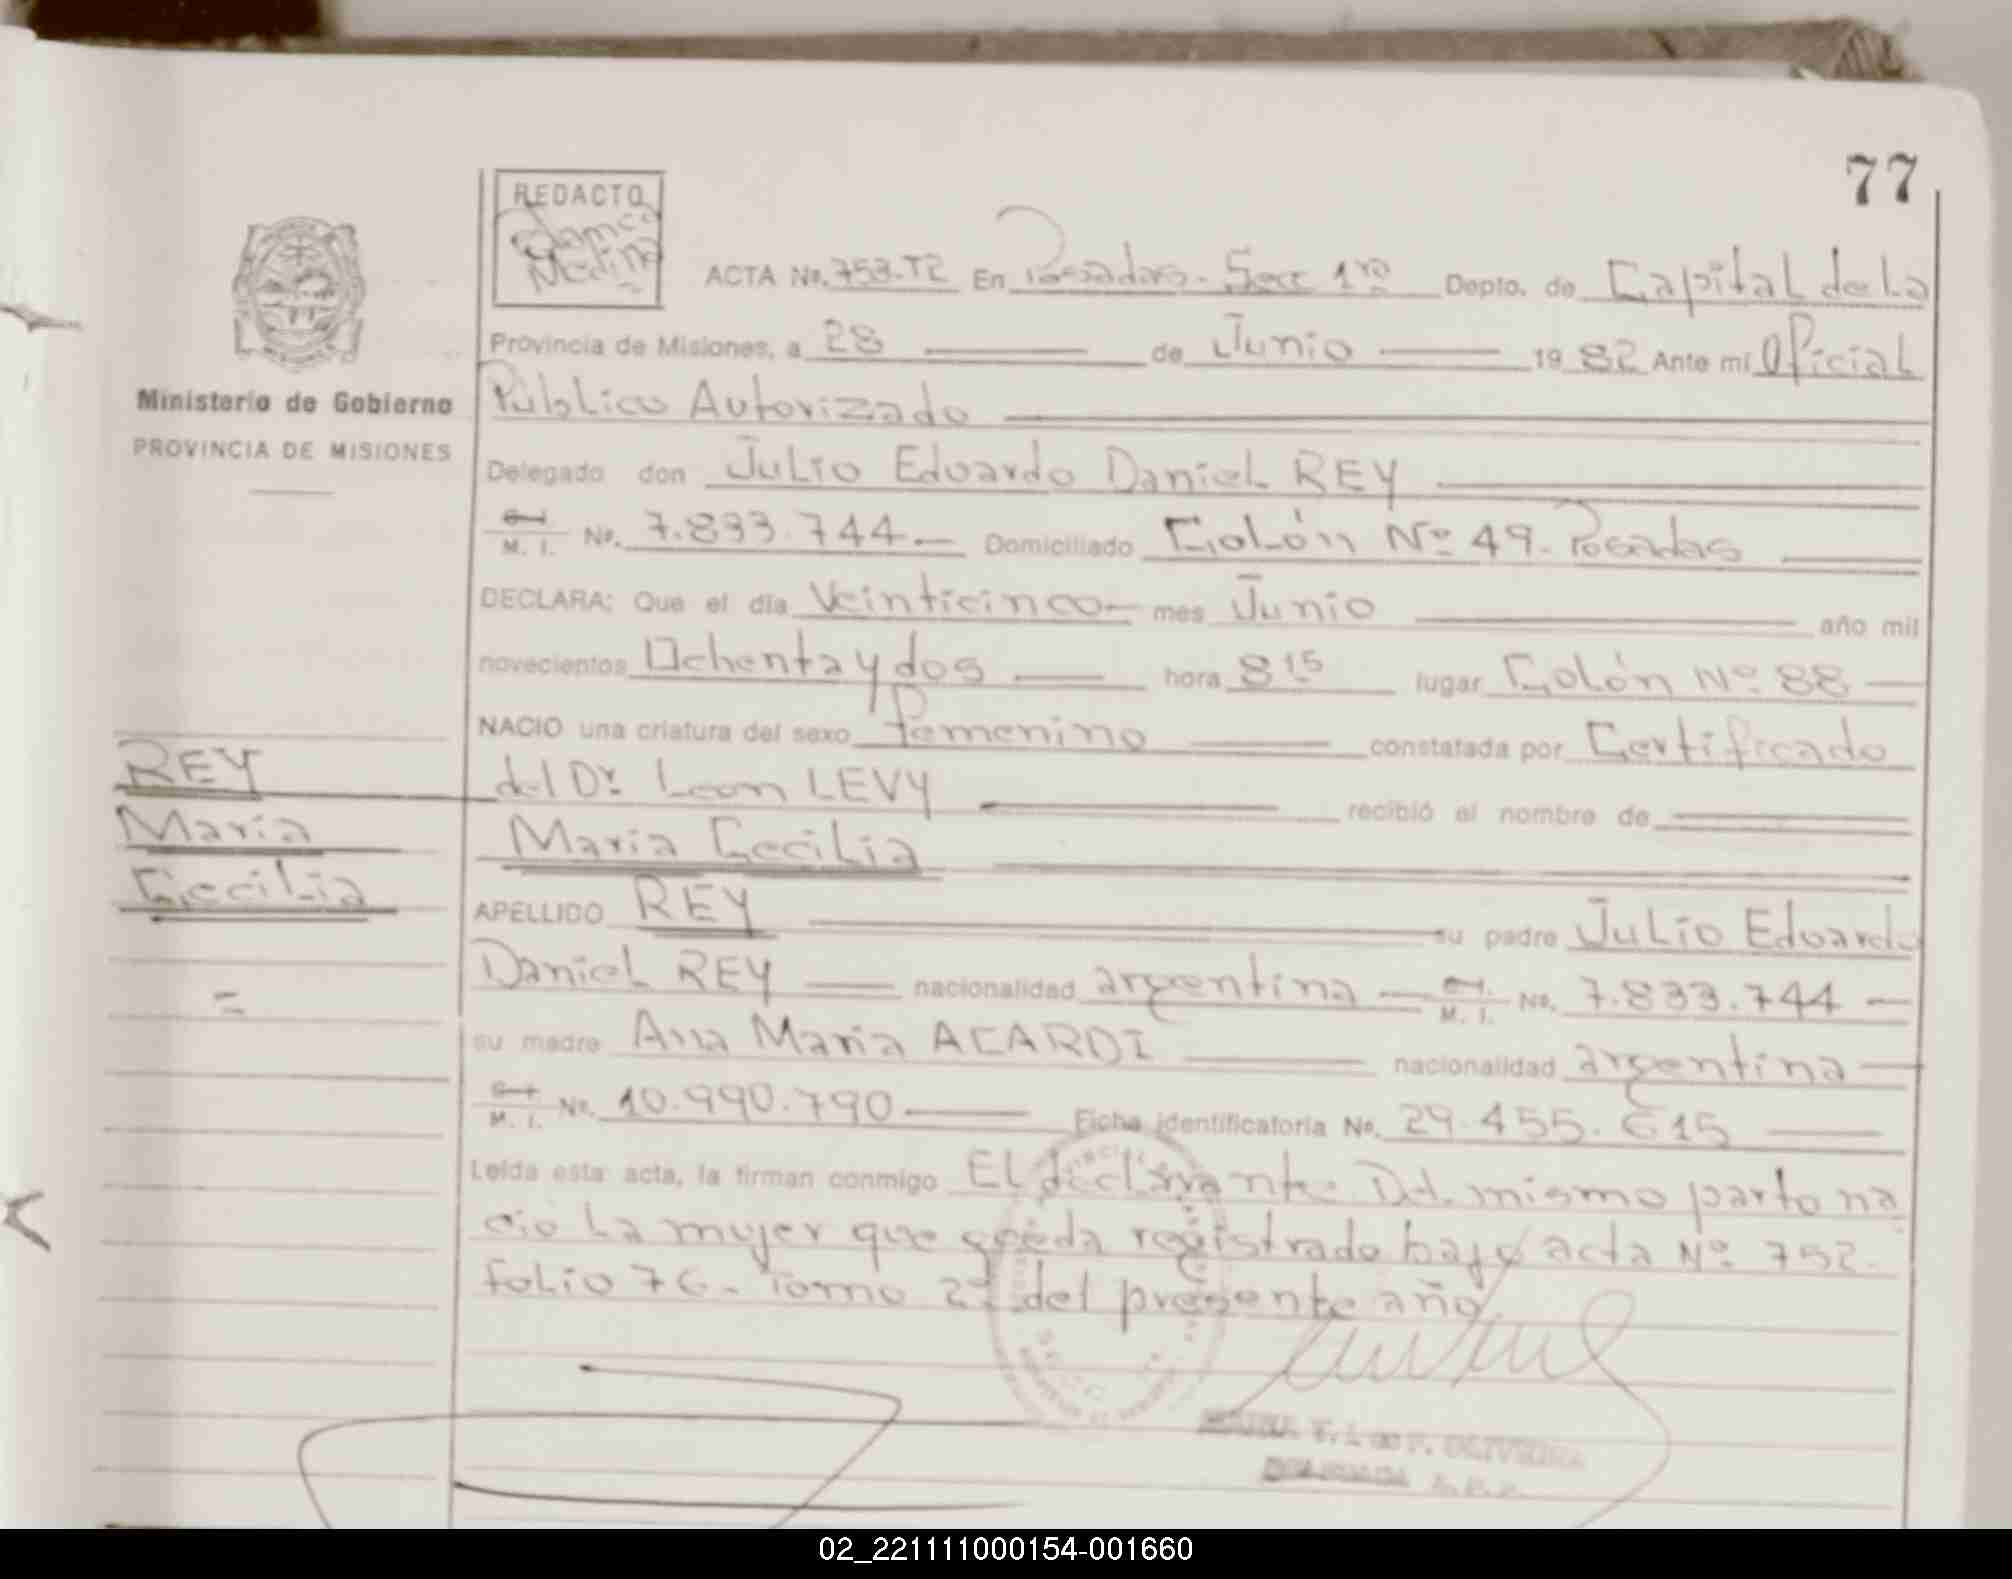 77
REDACTO
Medina
ACTA No. 753-T2 En Posadas - Secc 1ra Depto. de Capital de La
Provincia de Misiones, a 28 de Junio 1982 Ante mi Oficial
Ministerio de Gobierno
PROVINCIA DE MISIONES
Público Autorizado
Delegado don Julio Eduardo Daniel REY
M. I. No. 7.833.744.- Domiciliado Colón Nº 49. Posadas
DECLARA: Que el día Veinticinco mes Junio año mil
novecientos Ochenta y dos hora 8 15 lugar Colón Nº 88
NACIO una criatura del sexo femenino constatada por Certificado
del Dr. Leon LEVY recibió el nombre de
REY
Maria
Cecilia
=
Maria Cecilia
APELLIDO REY su padre Julio Eduardo
Daniel REY nacionalidad argentina M. I. No. 7.833.744
su madre Ana Maria ACARDI nacionalidad argentina
M. I. No. 10.990.790 Ficha identificatoria No. 29.455.615
Leída esta acta, la firman conmigo El declarante Del mismo parto na
ció La mujer que queda registrado bajo acta Nº 752.
folio 76 - Tomo 2º del presente año.
OLIVEIRA
02_221111000154-001660